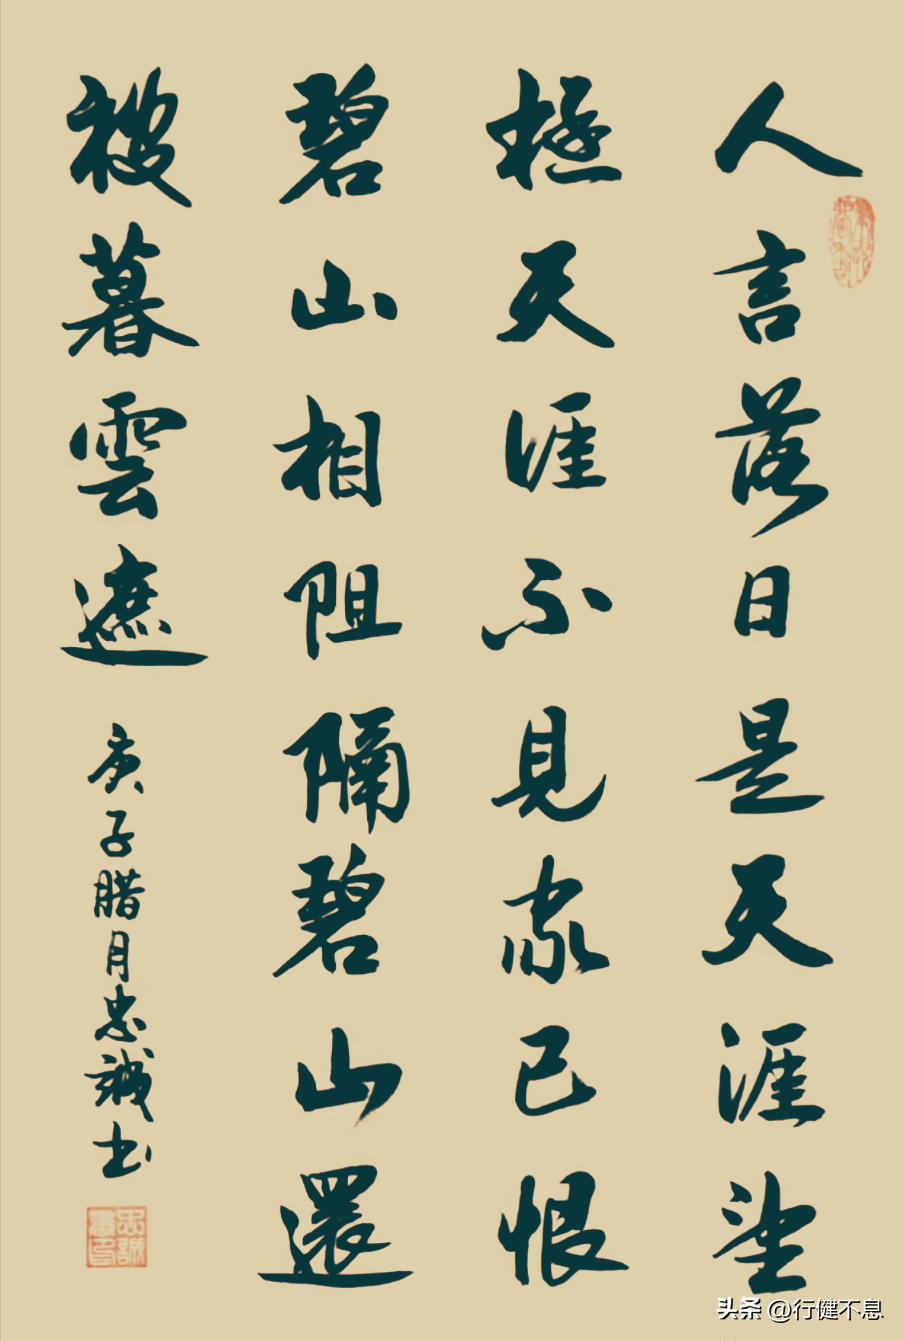 人言落日是天涯望
極天涯不見家已恨
碧山相阻隔碧山還
被暮雲遮
庚子腊月忠誠书
头条 @行健不息